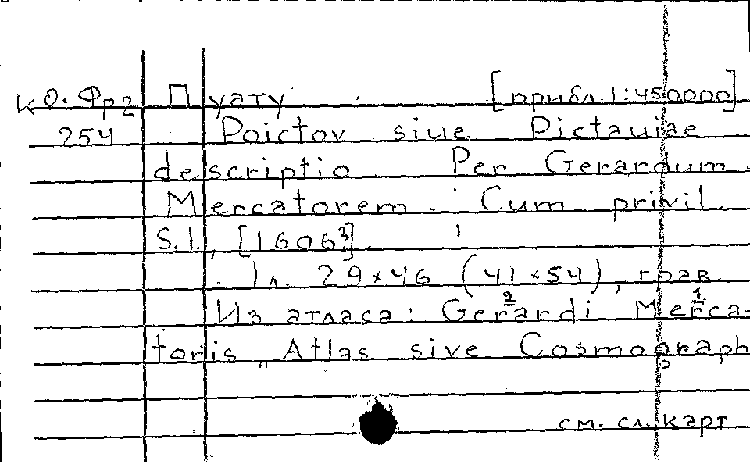 К О. Фр2 Пуату [прибл. 1:450000]
254 Poictov siue Pictauiae
descriptio. Per Gerardum
Mercatorem. Cum privil.
S.l., [1606³].
1 л. 29×46 (41×54), грав.
Из атласа: Gerardi² Merca-¹
toris, Atlas sive Cosmograph
см. сл. карт